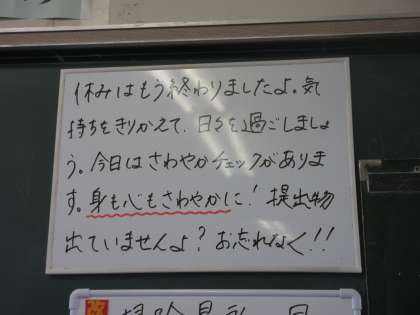 休みはもう終わりましたよ。気
持ちをきりかえて、日々を過ごしましょ
う。今日はさわやかチェックがありま
す。身も心もさわやかに！提出物
出ていませんよ？お忘れなく！！